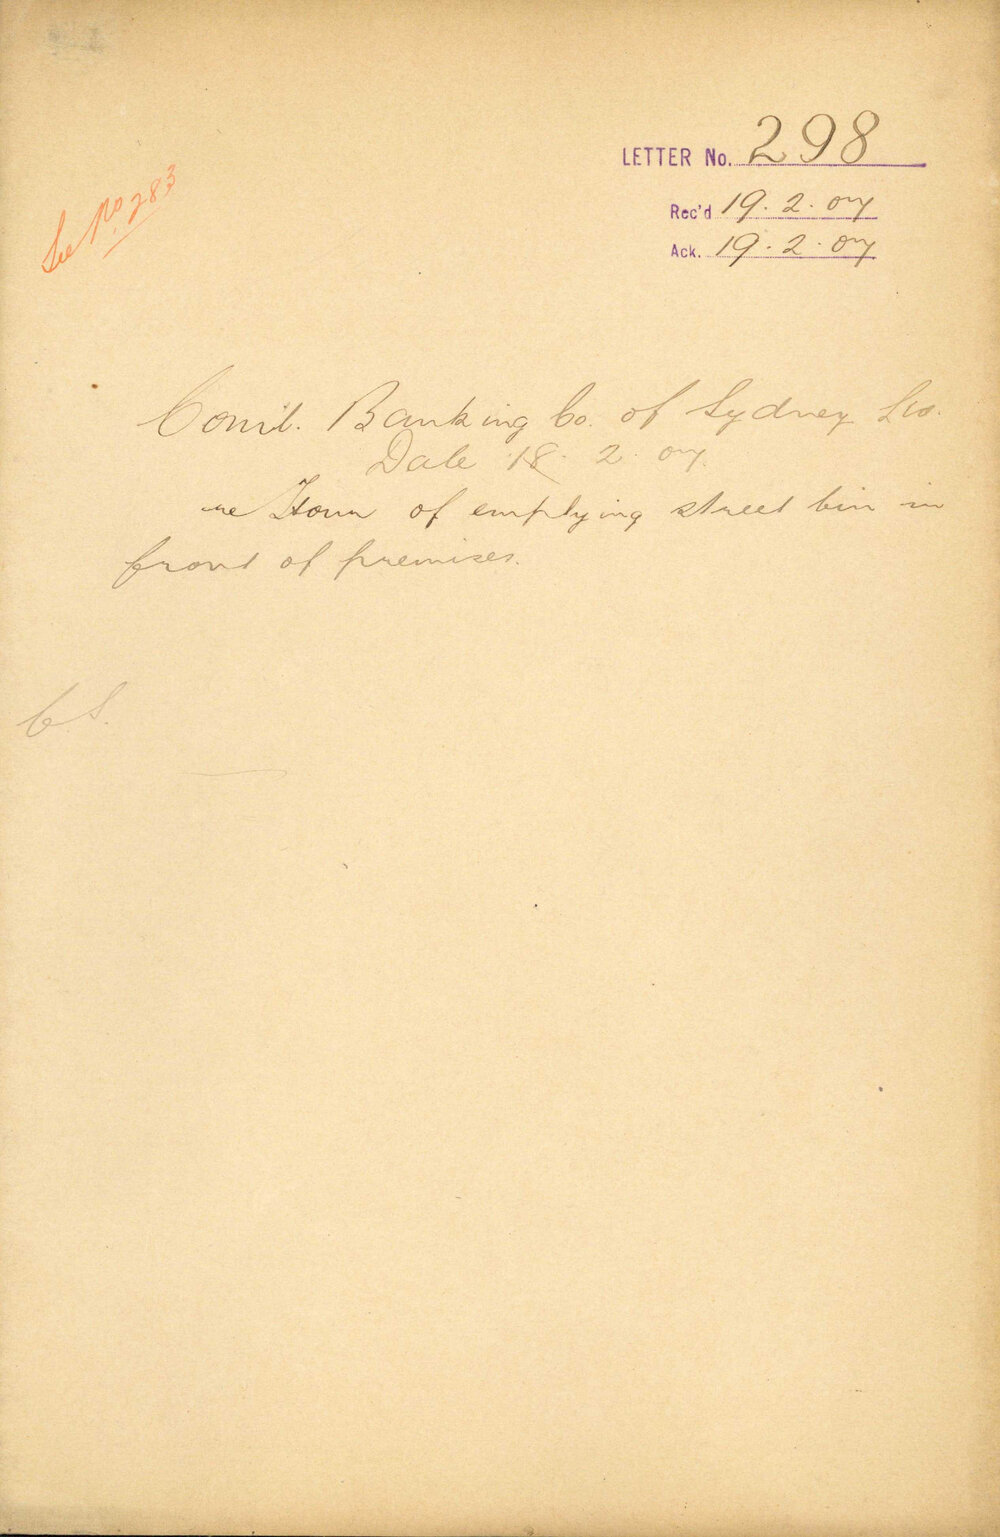 LETTER No. 298
Rec'd 19.2.07
Ack. 19.2.07
See No 283
Com'l. Banking Co. of Sydney Ltd.
Date 18.2.07.
re Hour of emptying street bin in
front of premises.
C.S.